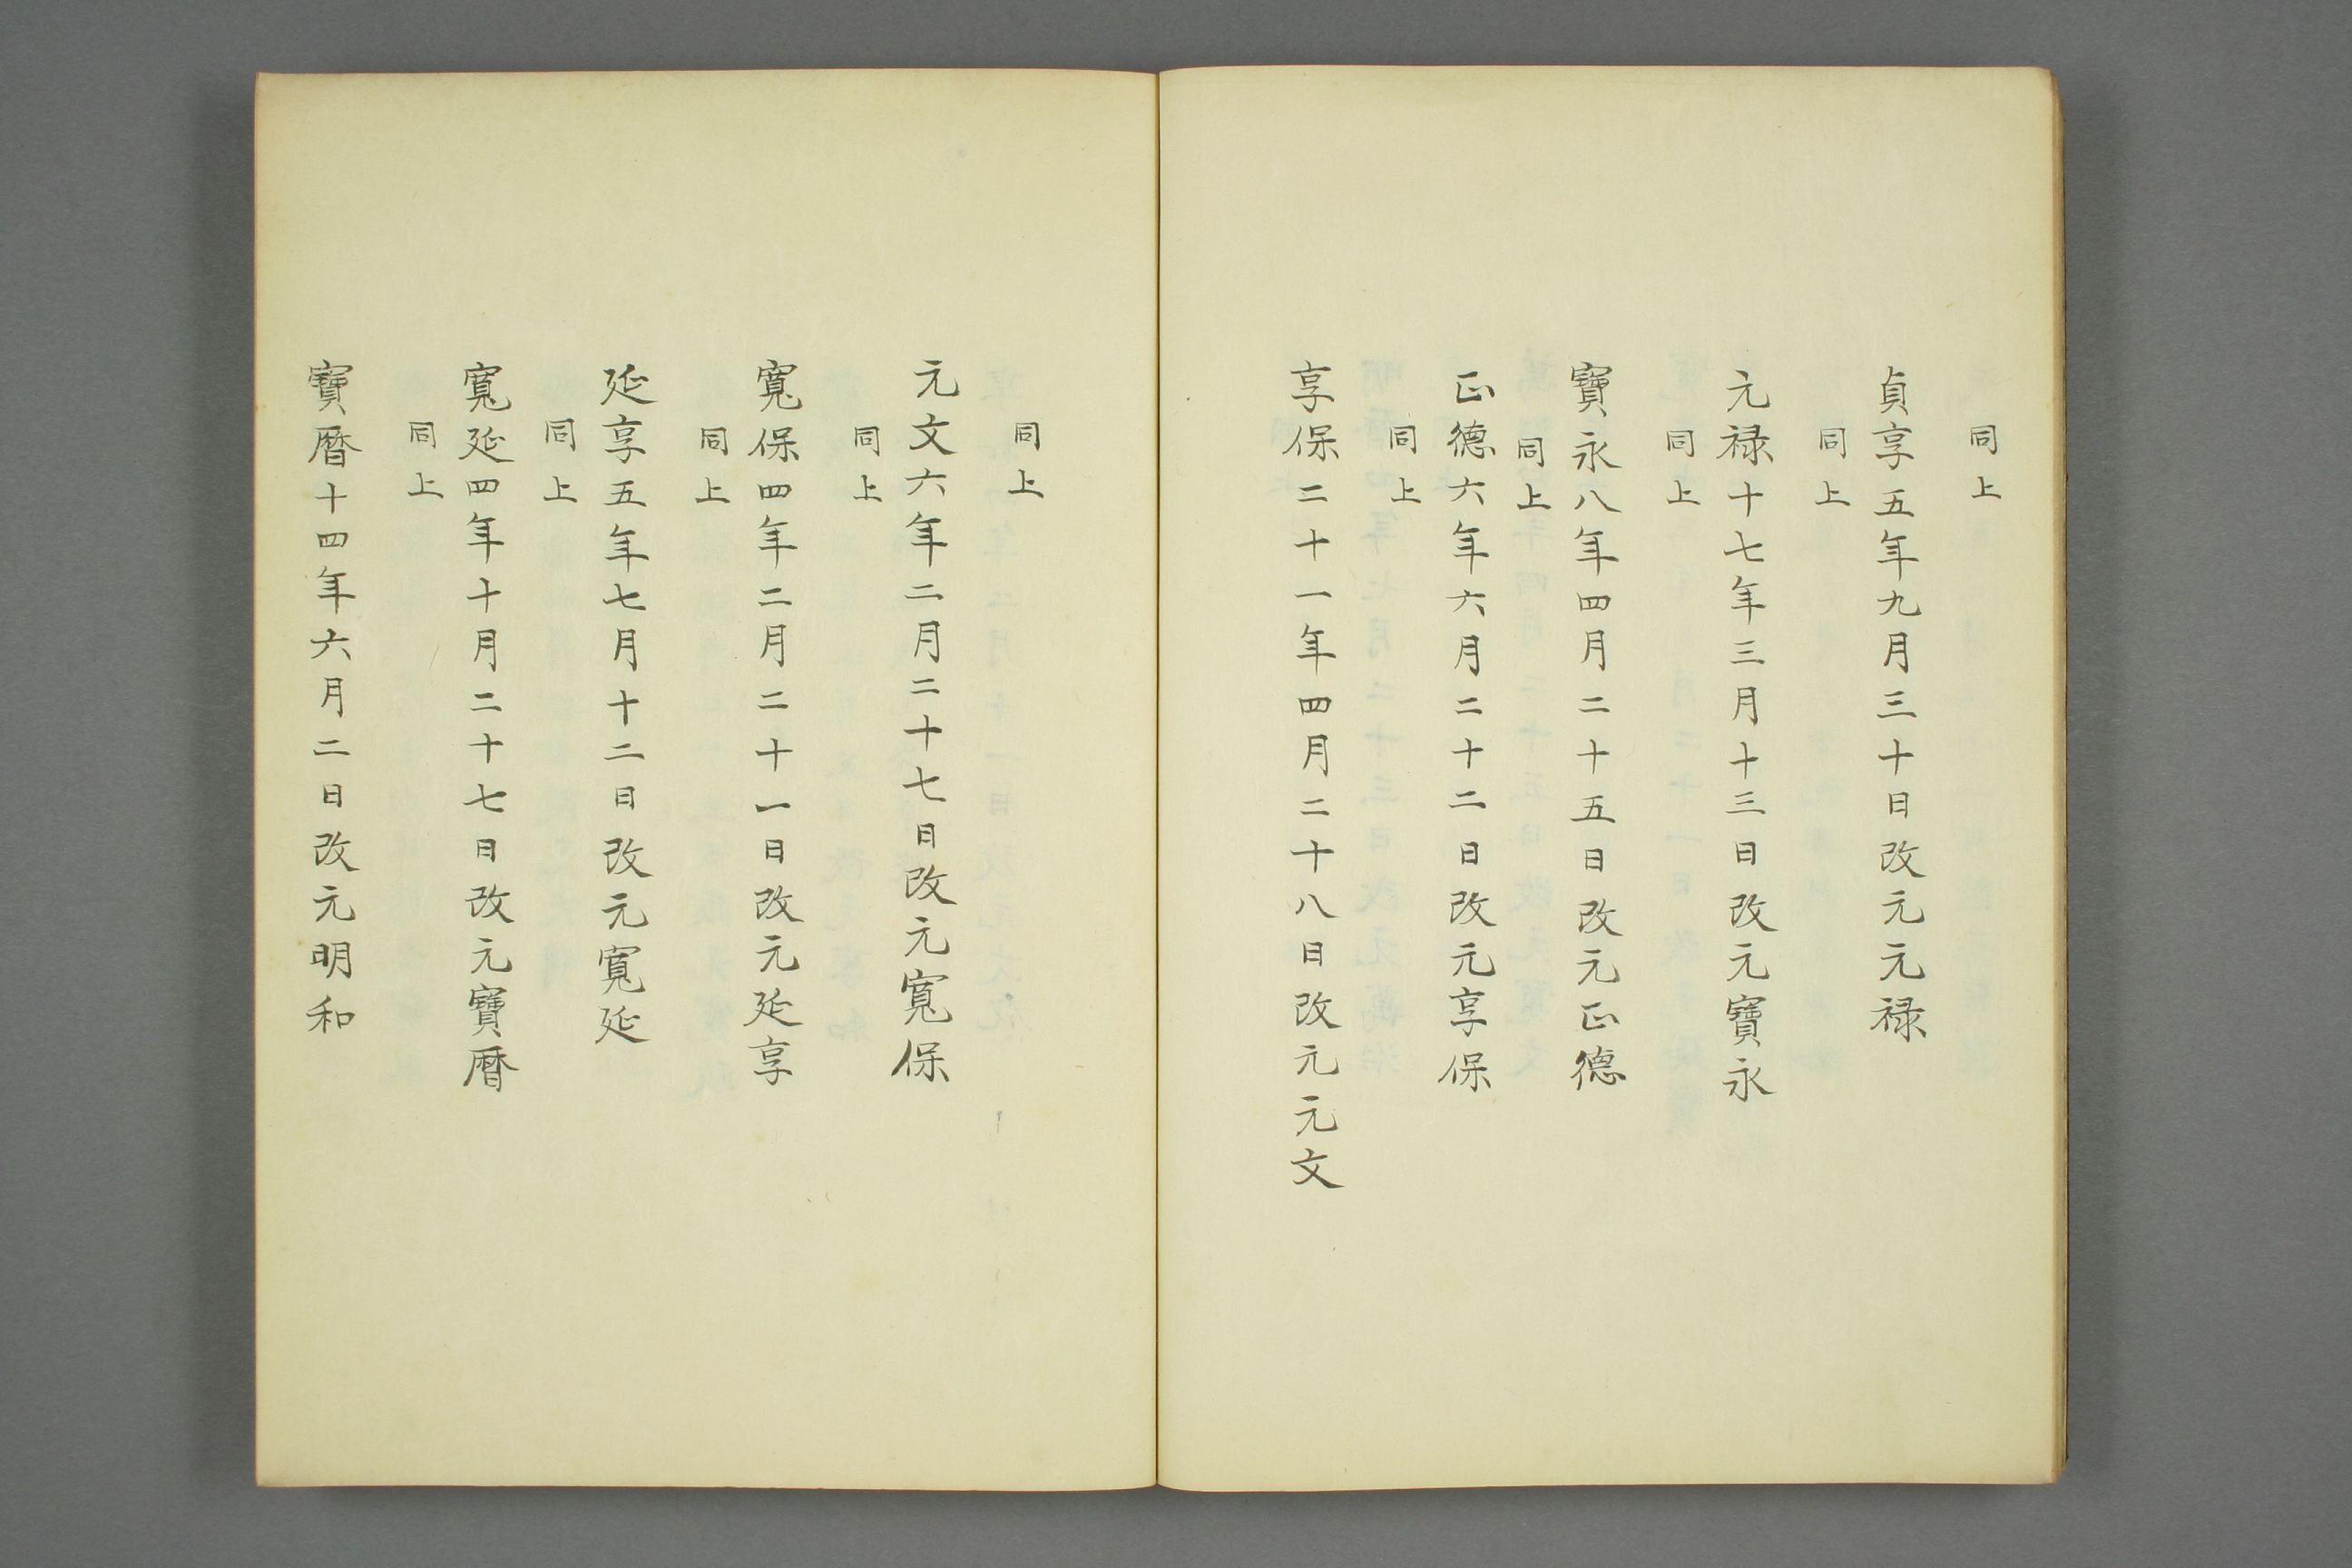 同上
貞享五年九月三十日改元元禄
同上
元禄十七年三月十三日改元寶永
同上
寶永八年四月二十五日改元正德
同上
正德六年六月二十二日改元享保
同上
享保二十一年四月二十八日改元元文
同上
元文六年二月二十七日改元寬保
同上
寬保四年二月二十一日改元延享
同上
延享五年七月十二日改元寬延
同上
寬延四年十月二十七日改元寶暦
同上
寶暦十四年六月二日改元明和